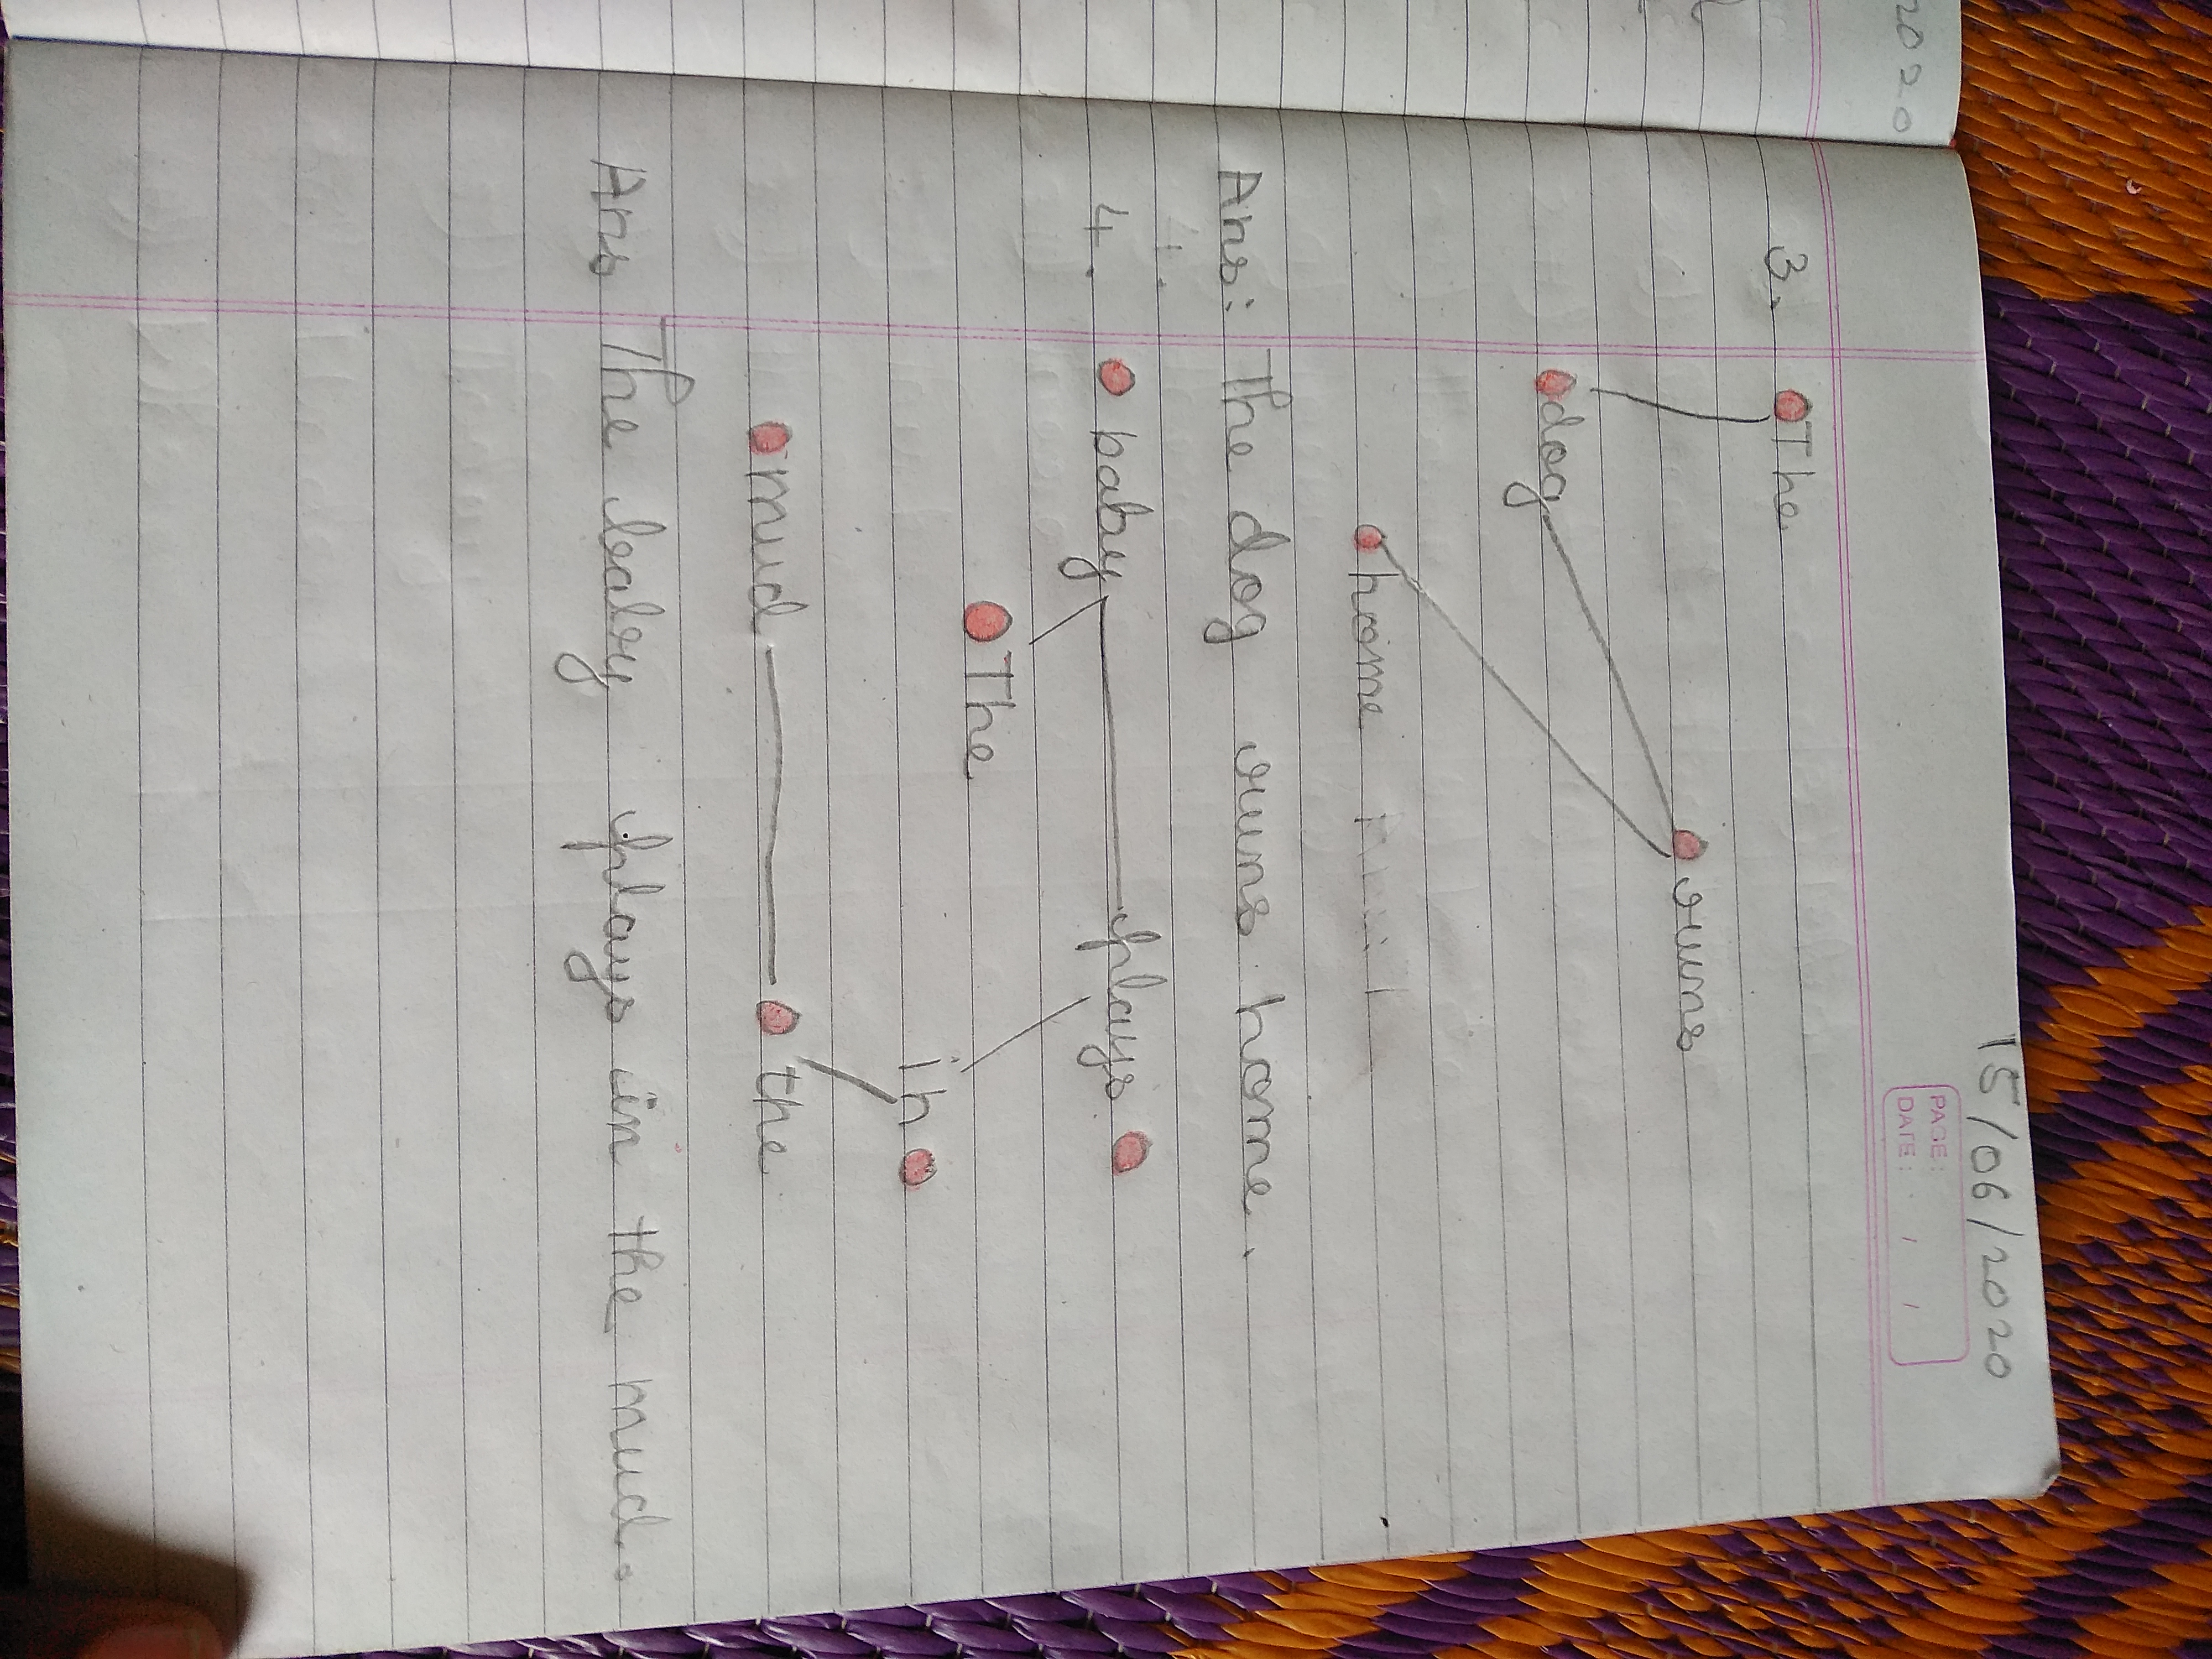 2020
15/06/2020
PAGE:
DATE: / /
3. The
runs
dog
home
Ans: The dog runs home.
4. baby plays
The
in
mud the
Ans The baby plays in the mud.